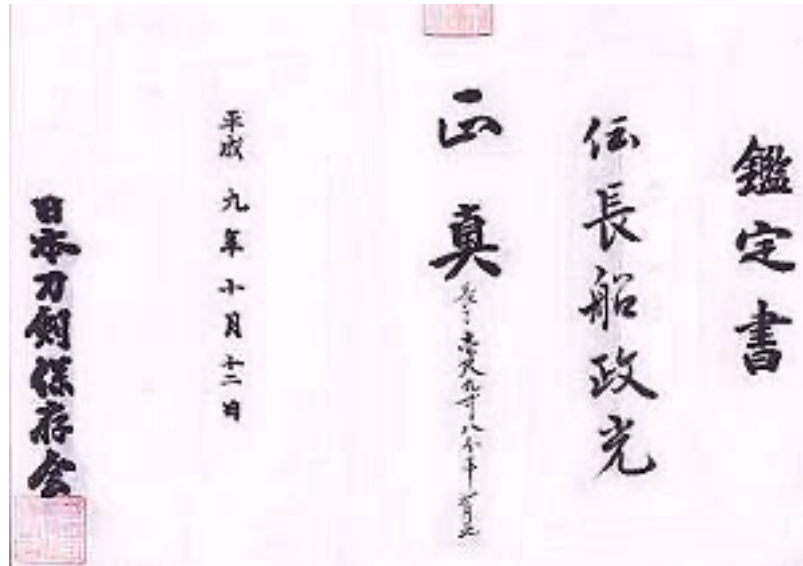 鑑定書
伝長船政光
正真
長さ壱尺九寸八分半
平成九年十月十二日
日本刀剣保存会